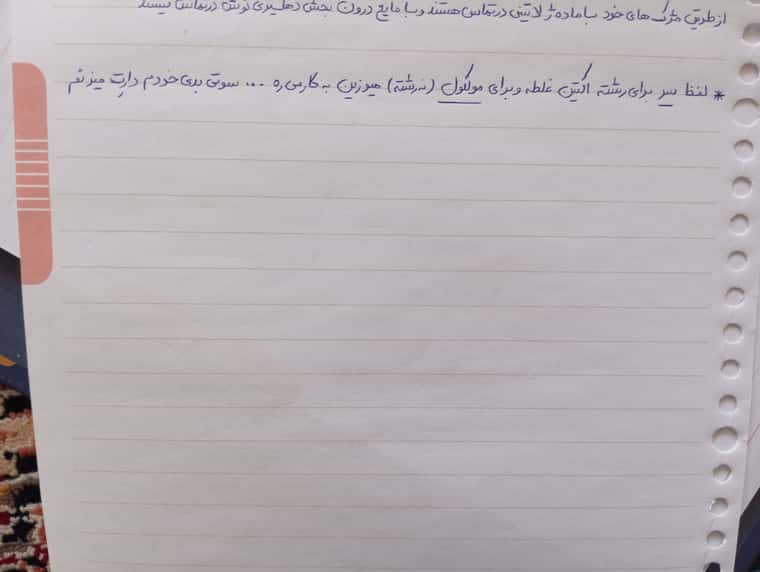 از طریق مژک های خود با ماده ژلاتینی در تماس هستند و با مایع درون بخش دهلیزی گوش در تماس نیستند
* لفظ سر برای رشته اکتین غلطه و برای مولکول (نه رشته) میوزین به کار می ره ... سوتی بدی خودم دارت میزنم